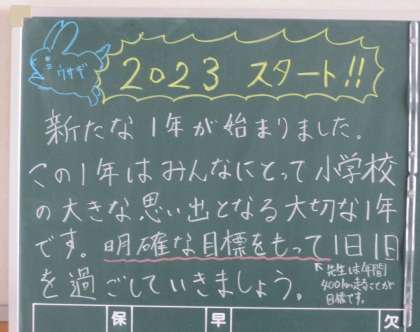 ウサギ
2023 スタート!!
新たな1年が始まりました。
この1年はみんなにとって小学校
の大きな思い出となる大切な1年
です。明確な目標をもって1日1日
を過ごしていきましょう。
先生は年間
400km走ることが
目標です。
保 早 欠